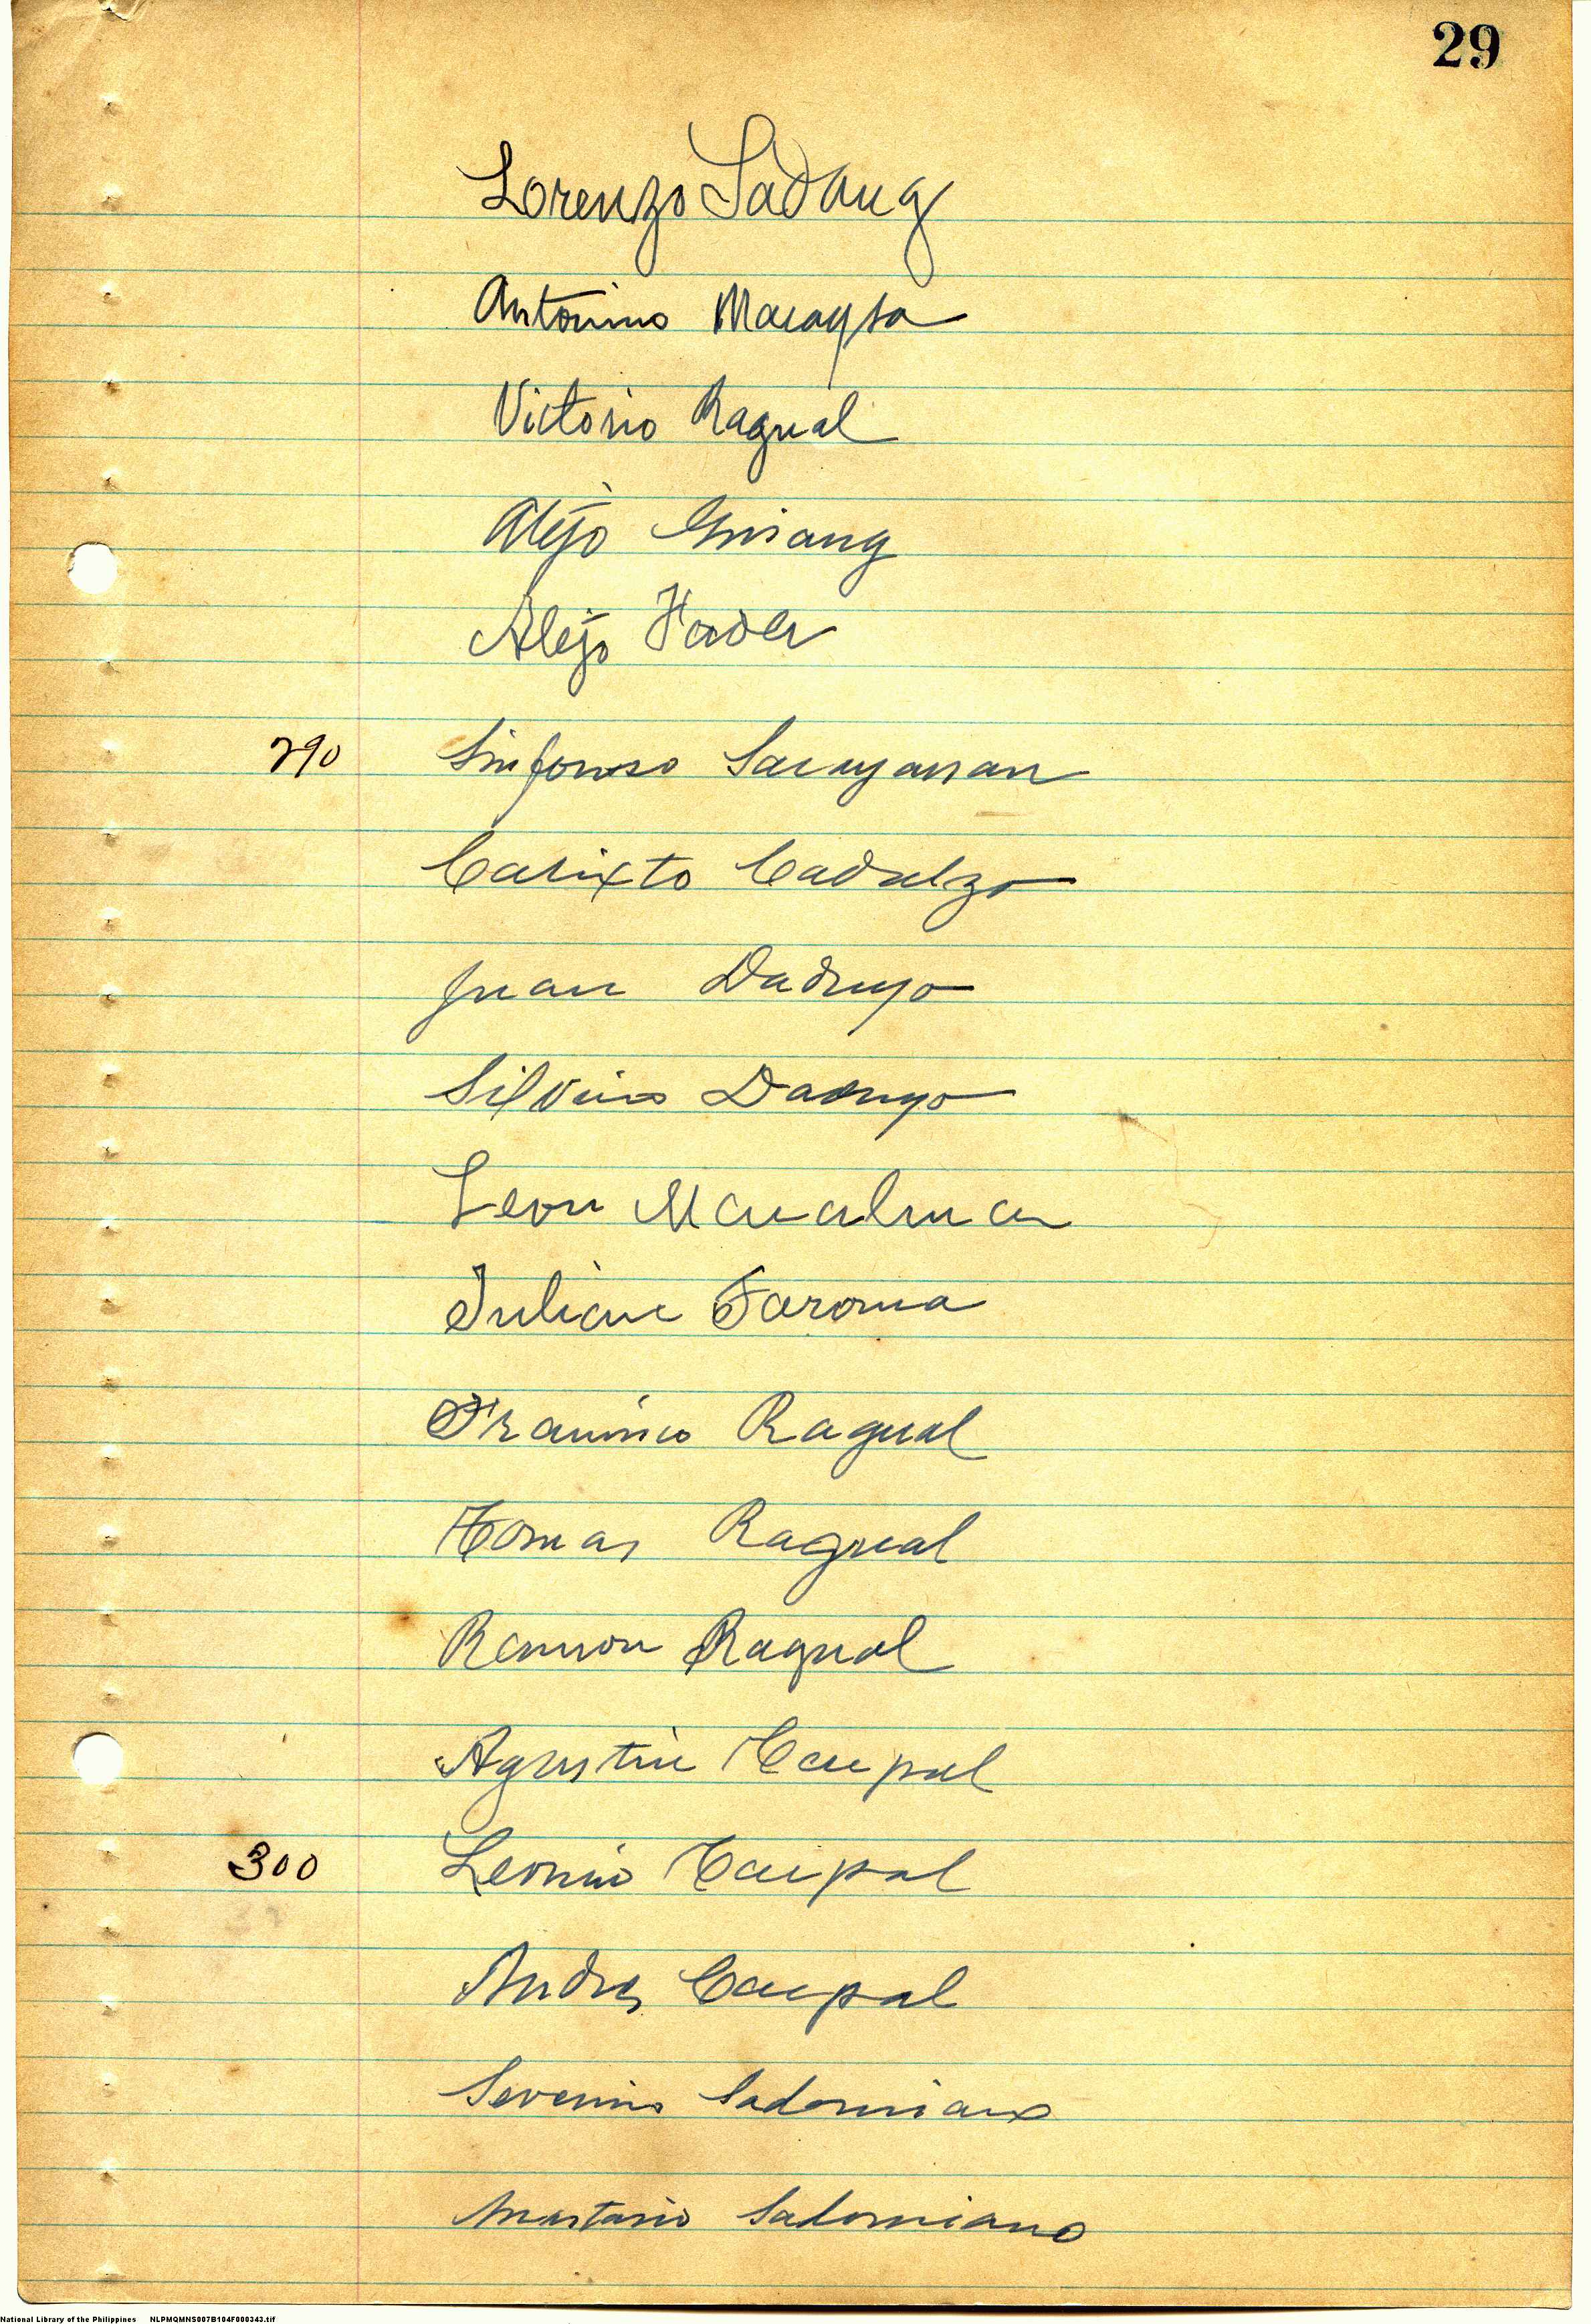 29
Lorenzo Sadang
Antonino
Victorio Ragual
Alejo
Alejo
290 Sinforoso
Calixto Cadalzo
Juan Daduyo
Silvino Daduyo
Leon
Julian Taroma
Francisco Ragual
Tomas Ragual
Ramon Ragual
Agustin Caupal
300 Leoncio Caupal
Andres Caupal
Severino Sadorniano
Anastasio Sadorniano
National Library of the Philippines NLPMQMNS007B104F000343.tif